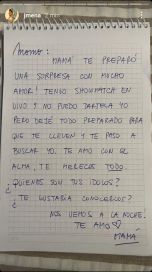 jmena
Momo:
MAMÁ TE PREPARÓ
UNA SORPRESA CON MUCHO
AMOR! TENGO SHOWMATCH EN
VIVO Y NO PUEDO DARTELA YO
PERO DEJÉ TODO PREPARADO PARA
QUE TE LLEVEN Y TE PASO A
BUSCAR YO. TE AMO CON EL
ALMA, TE MERECES TODO.
¿QUIENES SON TUS IDOLOS?
¿TE GUSTARIA CONOCERLOS?
NOS VEMOS A LA NOCHE!
TE AMO
MAMÁ